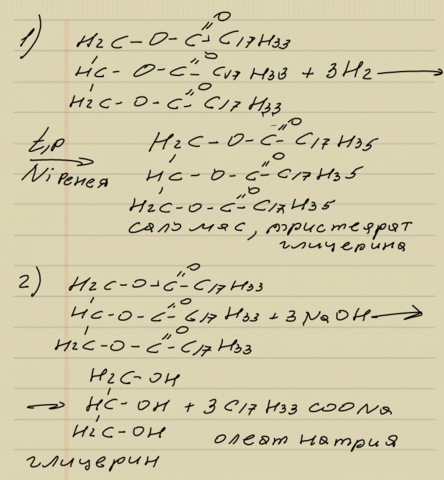 1) H2C - O - C(=O) - C17H33
HC - O - C(=O) - C17H33 + 3H2 →
H2C - O - C(=O) - C17H33
t,p
Ni Ренея
H2C - O - C(=O) - C17H35
HC - O - C(=O) - C17H35
H2C - O - C(=O) - C17H35
саломас, тристеарат
глицерина
2) H2C - O - C(=O) - C17H33
HC - O - C(=O) - C17H33 + 3NaOH →
H2C - O - C(=O) - C17H33
H2C - OH
→ HC - OH + 3C17H33COONa
H2C - OH олеат натрия
глицерин